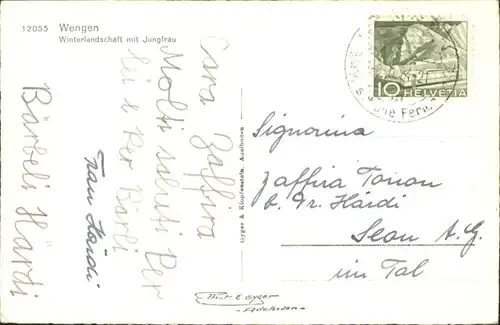 12055 Wengen
Winterlandschaft mit Jungfrau
Cara Zaffira
Molti saluti Per
Per Bärli
Frau Härdi
Bärbeli Härdi
Gyger & Klopfenstein, Adelboden
10 HELVETIA
Signorina
Zaffira Tonon
b. Fr. Härdi
Seon A.G.
im Tal
Phot. E Gyger
-Adelboden-